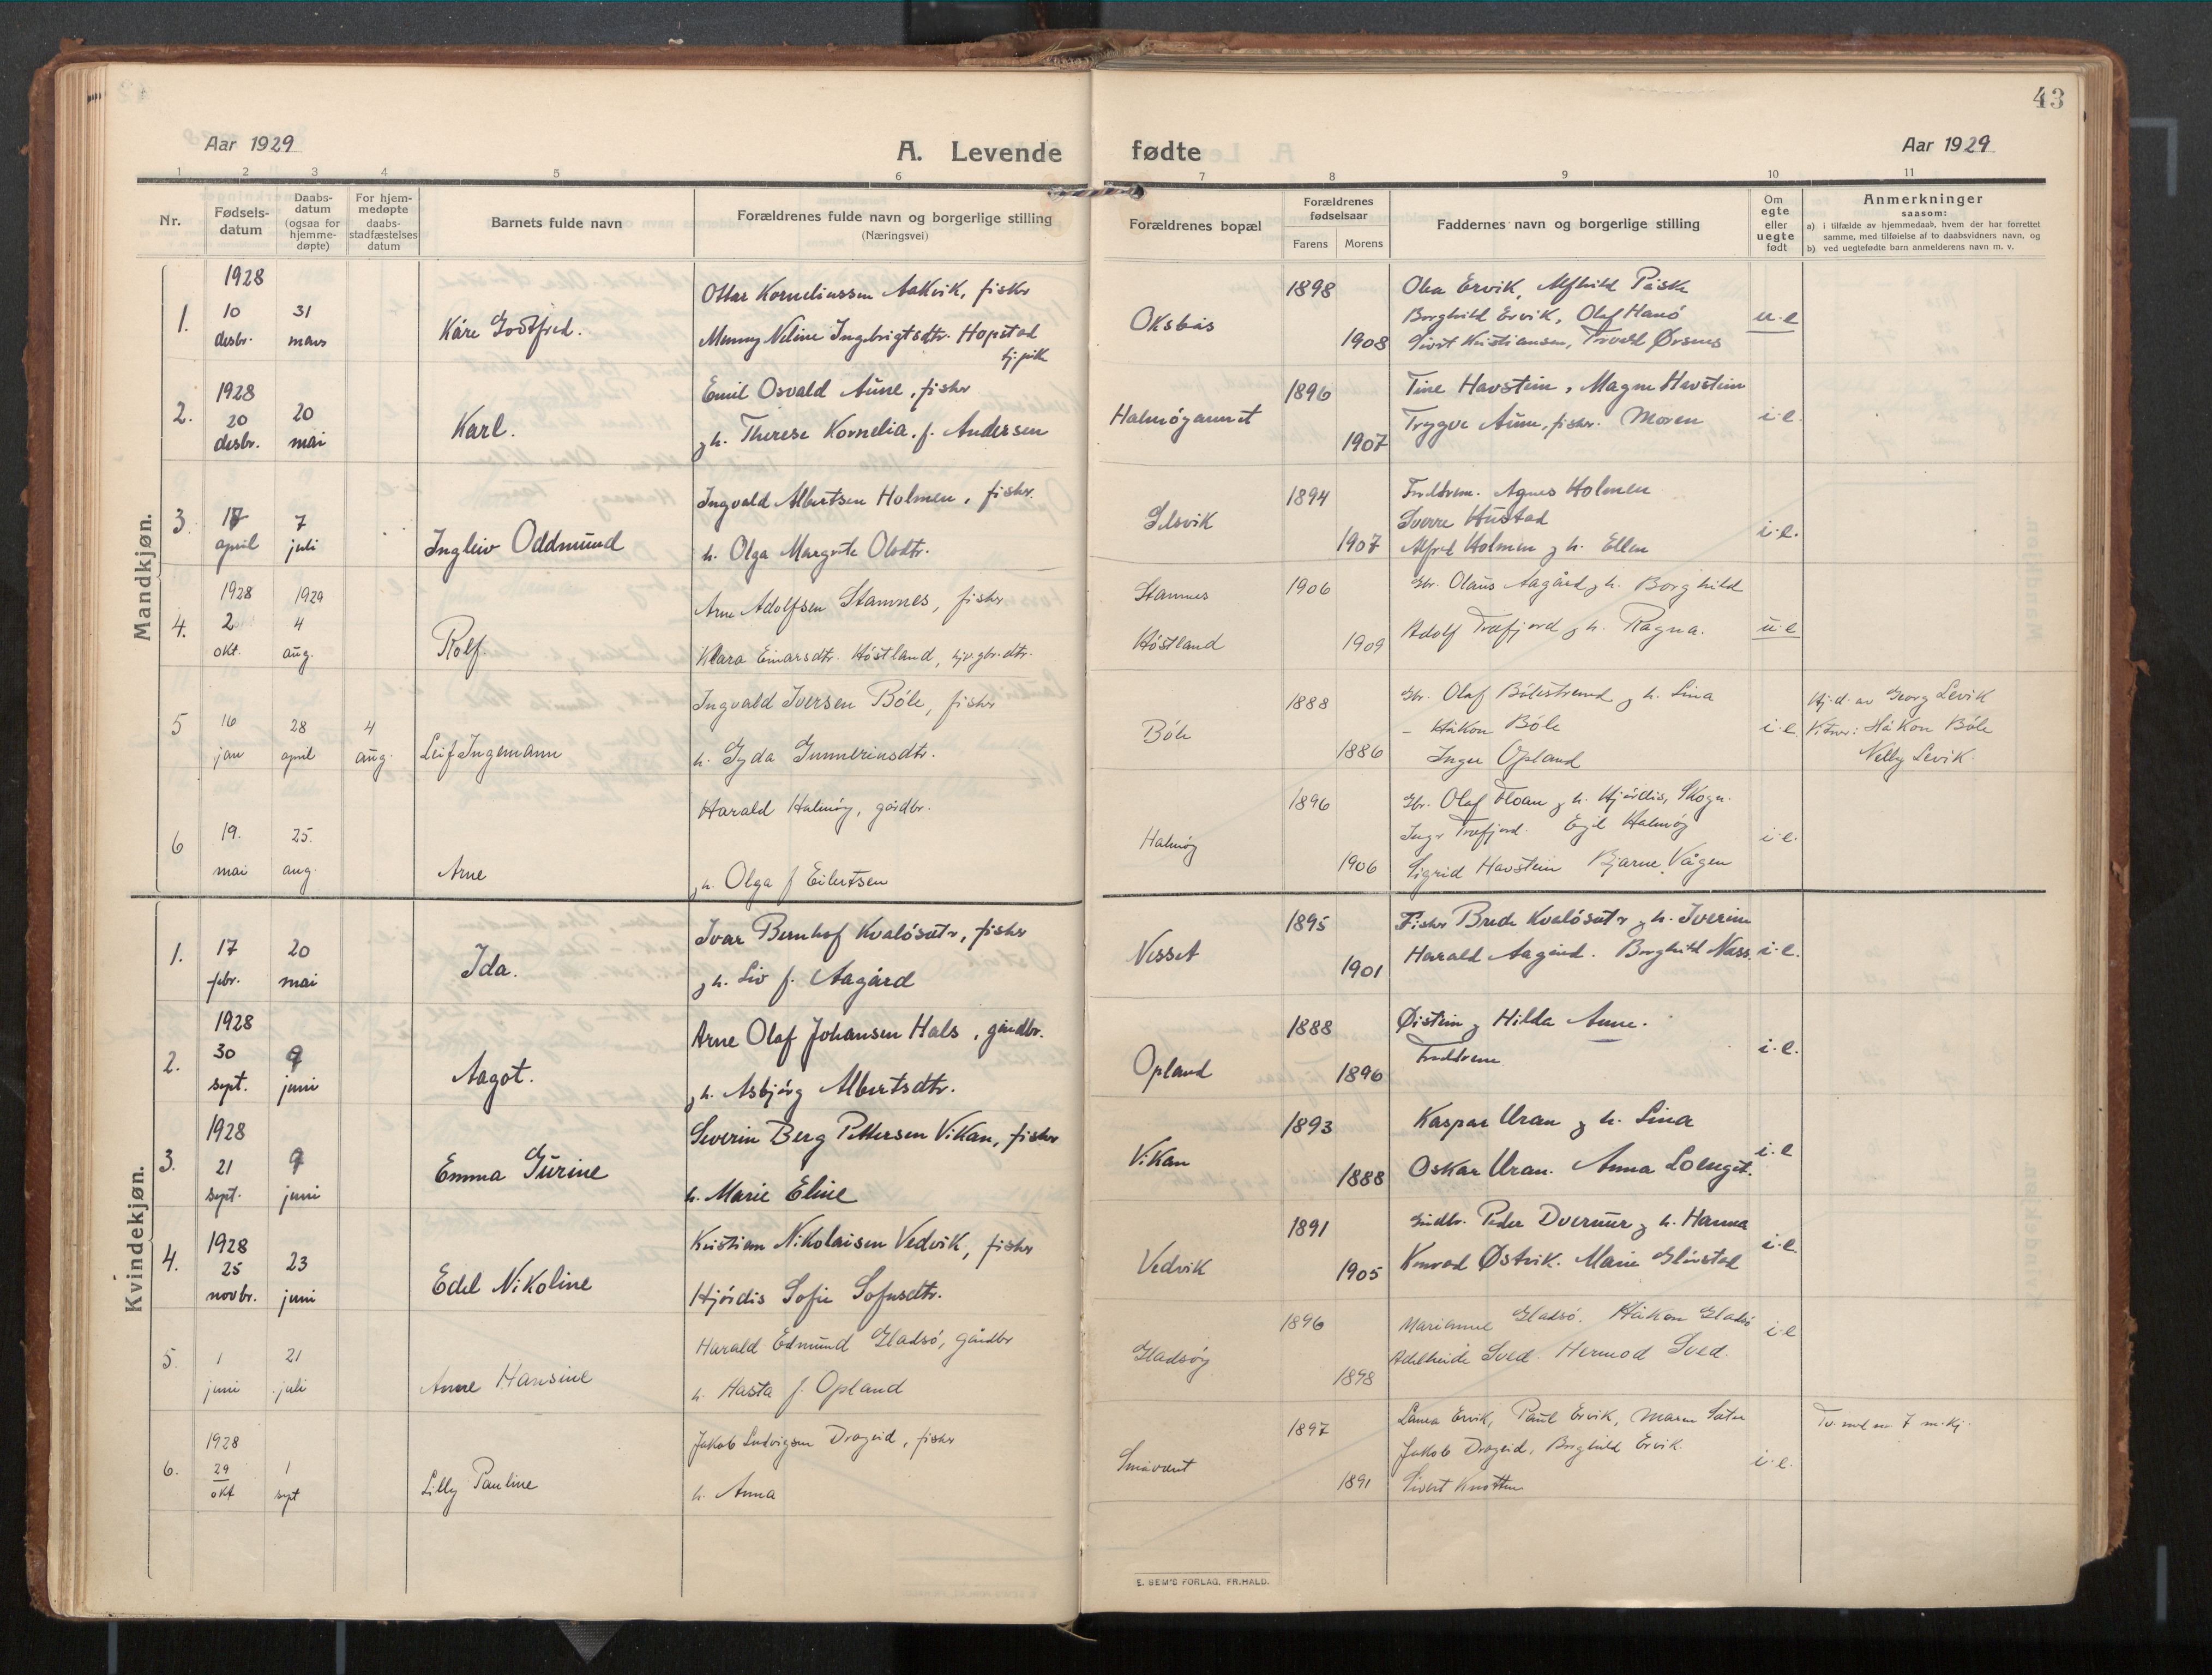 43
Aar 1929
A. Levende fødte
Aar 1929
1 2 3 4 5 6 7 8 9 10 11
Nr.
Fødsels-
datum
Daabs-
datum
(ogsaa for
hjemme-
døpte)
For hjem-
medøpte
daabs-
stadfæstelses
datum
Barnets fulde navn
Forældrenes fulde navn og borgerlige stilling
(Næringsvei)
Forældrenes bopæl
Forældrenes
fødselsaar
Farens Morens
Faddernes navn og borgerlige stilling
Om
egte
eller
uegte
født
Anmerkninger
saasom:
a) i tilfælde av hjemmedaab, hvem der har forrettet
samme, med tilføielse af to daabsvidners navn, og
b) ved uegtefødte barn anmelderens navn m. v.
Mandkjøn.
1.
1928
10
desbr.
31
mars
Kåre Godtfred.
Ottar Korneliussen Aakvik, fisker
Menny Neline Ingebrigtsdtr. Hopstad
hj.pike
Oksbås
1898
1908
Olea Ervik, Alfhild Påske
Borghild Ervik, Olaf Hanó
Sivert Kristiansen, Ørsnes
u.e
2.
1928
20
desbr.
20
mai
Karl.
Emil Osvald Aune, fisker
g h. Therese Kornelia f. Andersen
Halmøyaunet
1896
1907
Tine Havstein, Magne Havstein
Trygve Aune, fisker. Moren
i.e.
3
17
april
7
juli
Ingleiv Oddmund
Ingvald Albertsen Holmen, fisker.
h. Olga Margrete Olsdtr.
Selsvik
1894
1907
Foreldrene. Agnes Holmen
Sverre Hustad
Alfred Holmen g h. Ellen
i.e.
4.
1928
2
okt.
1929
4
aug.
Rolf
Arne Adolfsen Stamnes, fisker
Klara Einarsdtr. Høstland, hjv. gbr. dtr.
Stamnes
Høstland
1906
1909
Gbr. Olaus Aagård g h. Borghild
Adolf Træfjord g h. Ragna.
u.e
5
16
jan
28
april
4
aug.
Leif Ingemann
Ingvald Iversen Bóle, fisker
h. Gyda Gunneriusdtr.
Bóle
1888
1886
Gbr. Olaf Bólestrand g h. Lina
- Håkon Bóle
Inger Opland
i.e.
Hj.d. av Georg Levik
Vitner: Håkon Bóle
Nelly Levik
6
19.
mai
25.
aug.
Arne
Harald Halmøy, gårdbr.
g h. Olga f Eilertsen
Halmøy
1896
1906
Gbr. Olaf Floan g h. Hjørdis, Skogn.
Inger Træfjord. Egil Halmøy
Sigrid Havstein Bjarne Vågen
i.e.
Kvindekjøn.
1.
17
febr.
20
mai
Ida.
Ivar Bernhof Kvaløsætr, fisker
g h. Liv f. Aagård
Nesset
1895
1901
Fisker Brede Kvaløsætr g h. Iverine
Harald Aagård. Borghild Næss.
i.e.
2.
1928
30
sept.
9
juni
Aagot.
Arne Olaf Johansen Hals, gårdbr.
g h. Asbjørg Albertsdtr.
Opland
1888
1896
Øistein g Hilda Aune.
Foreldrene
i.e.
3.
1928
21
sept.
9
juni
Emma Gurine
Severin Berg Pettersen Vikan, fisker
h. Marie Eline
Vikan
1893
1888
Kaspar Uran g h. Lina
Oskar Uran. Anna
i.e
4.
1928
25
novbr.
23
juni
Edel Nikoline
Kristian Nikolaisen Vedvik, fisker
Hjørdis Sofie Sofusdtr.
Vedvik
1891
1905
Gårdbr. Peder Duermur g h. Hanna
Konrad Østvik. Marie
i.e.
5.
1
juni
21
juli
Anne Hansine
Harald Edmund Gladsø, gårdbr
h. Aasta f. Opland
Gladsøy
1896
1898
Marianne Gladsø. Håkon Gladsø
Adelheide Sved. Hermod Sved.
i.e
6.
1928
29
okt
1
sept
Lilly Pauline
Jakob Ludvigsen Drageid, fisker
h. Anna
Småvatnet
1897
1891
Laura Ervik, Paul Ervik, Maren Sæter
Jakob Drageid, Borghild Ervik.
Sivert Knotten
i.e.
Tv. med nr 7 m.kj.
E. SEM'S FORLAG, FR.HALD.